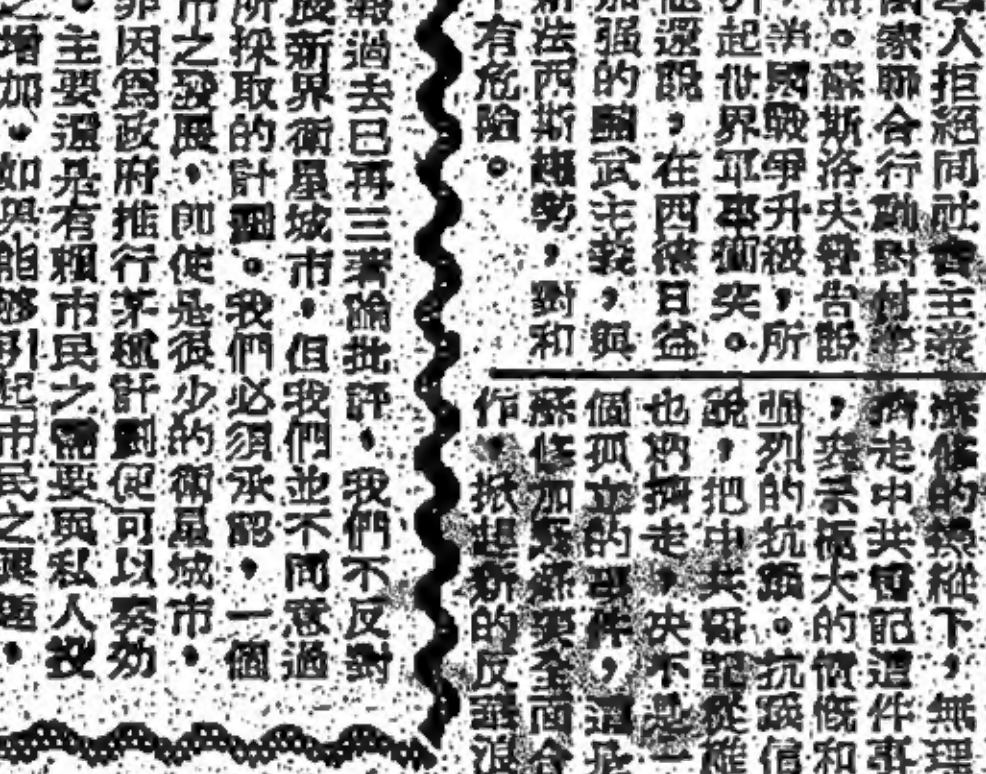 人拒絕同社會主義
國家聯合行動對付
。蘇斯洛夫警告說
，美國戰爭升級，所
引起世界軍事衝突。
他還說，在西德日益
加强的黷武主義，與
新法西斯趨勢，對和
有危險。
蘇修的操縱下，無理
擠走中共書記這件事
，表示極大的憤慨和
强烈的抗議。抗議信
說，把中共書記從雅
也納擠走，決不是一
個孤立的事件，這是
蘇修加緊要全面合
作，掀起新的反華浪
報過去已再三著論批評，我們不反對
展新界衛星城市，但我們並不同意過
所採取的計劃。我們必須承認，一個
市之發展，即使是很少的衛星城市，
非因爲政府推行某種計劃便可以奏効
。主要還是有賴市民之需要與私人投
之增加。如能够引起市民之興趣，